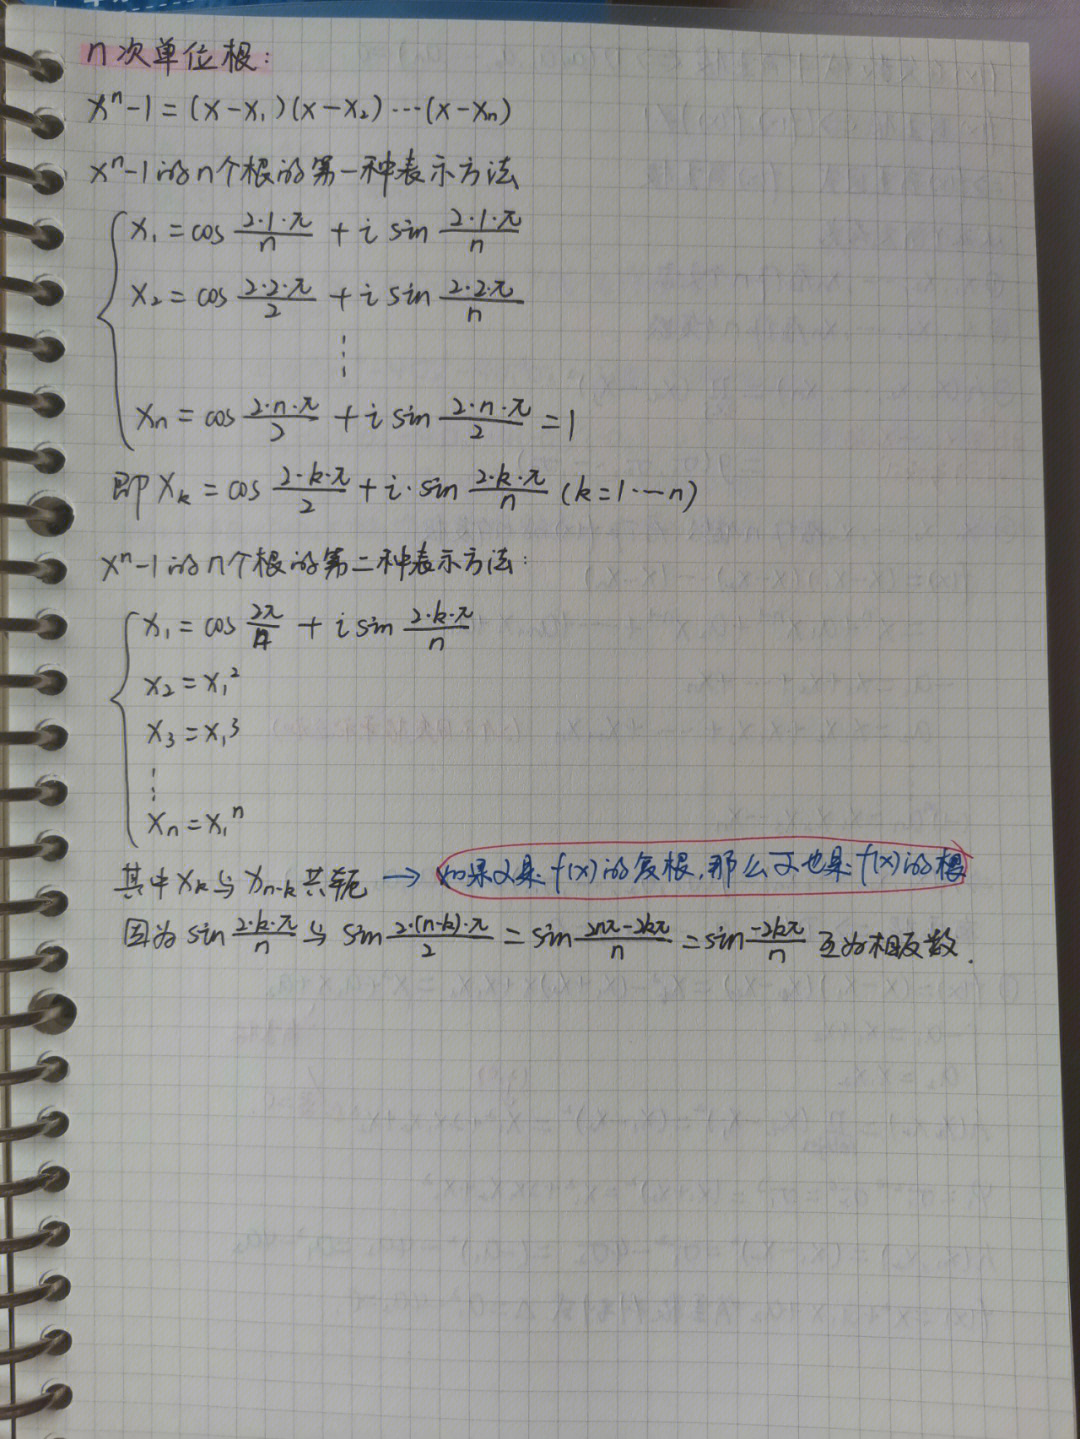 n次单位根:
xⁿ-1=(x-x₁)(x-x₂)···(x-xₙ)
xⁿ-1的n个根的第一种表示方法
x₁=cos 2·1·π/n + i sin 2·1·π/n
x₂=cos 2·2·π/2 + i sin 2·2·π/n
⋮
xₙ=cos 2·n·π/2 + i sin 2·n·π/2 =1
即 xₖ=cos 2·k·π/2 + i·sin 2·k·π/n (k=1···n)
xⁿ-1的n个根的第二种表示方法:
x₁=cos 2π/n + i sin 2·k·π/n
x₂=x₁²
x₃=x₁³
⋮
xₙ=x₁ⁿ
其中xₖ与xₙ₋ₖ共轭 → 如果α是f(x)的复根,那么ᾱ也是f(x)的根
因为 sin 2·k·π/n 与 sin 2·(n-k)·π/2 = sin 2nπ-2kπ/n = sin -2kπ/n 互为相反数.